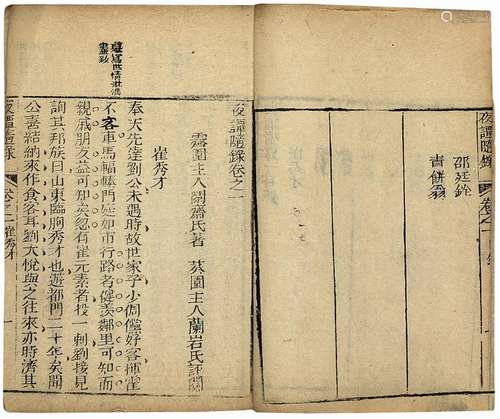 夜譚隨錄
卷之一
邵廷銓
書餅翁
夜譚隨錄卷之一
霽園主人閑齋氏著 葵園主人蘭岩氏評閱
崔秀才
寫世情淋漓
盡致
奉天先達劉公未遇時故世家子少倜儻好客揮霍
不客車馬輻輳門庭如市行路者健羨鄰里可知而
親戚朋友益可知矣忽有崔元素者投一刺劉接見
詢其邦族曰山東臨朐秀才也遊都門二十年矣聞
公喜結納來作食客耳劉大悅與之往來亦時濟其
夜譚隨錄 卷之一 崔秀才 一